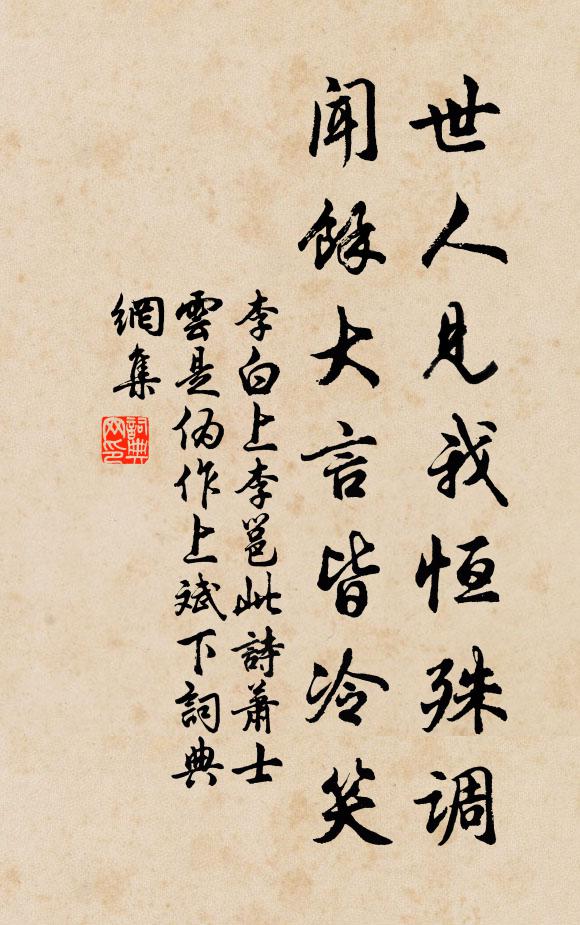 世人见我恒殊调
闻餘大言皆冷笑
李白上李邕此詩蕭士
雲是偽作上斌下詞典
網集
詞典
网印